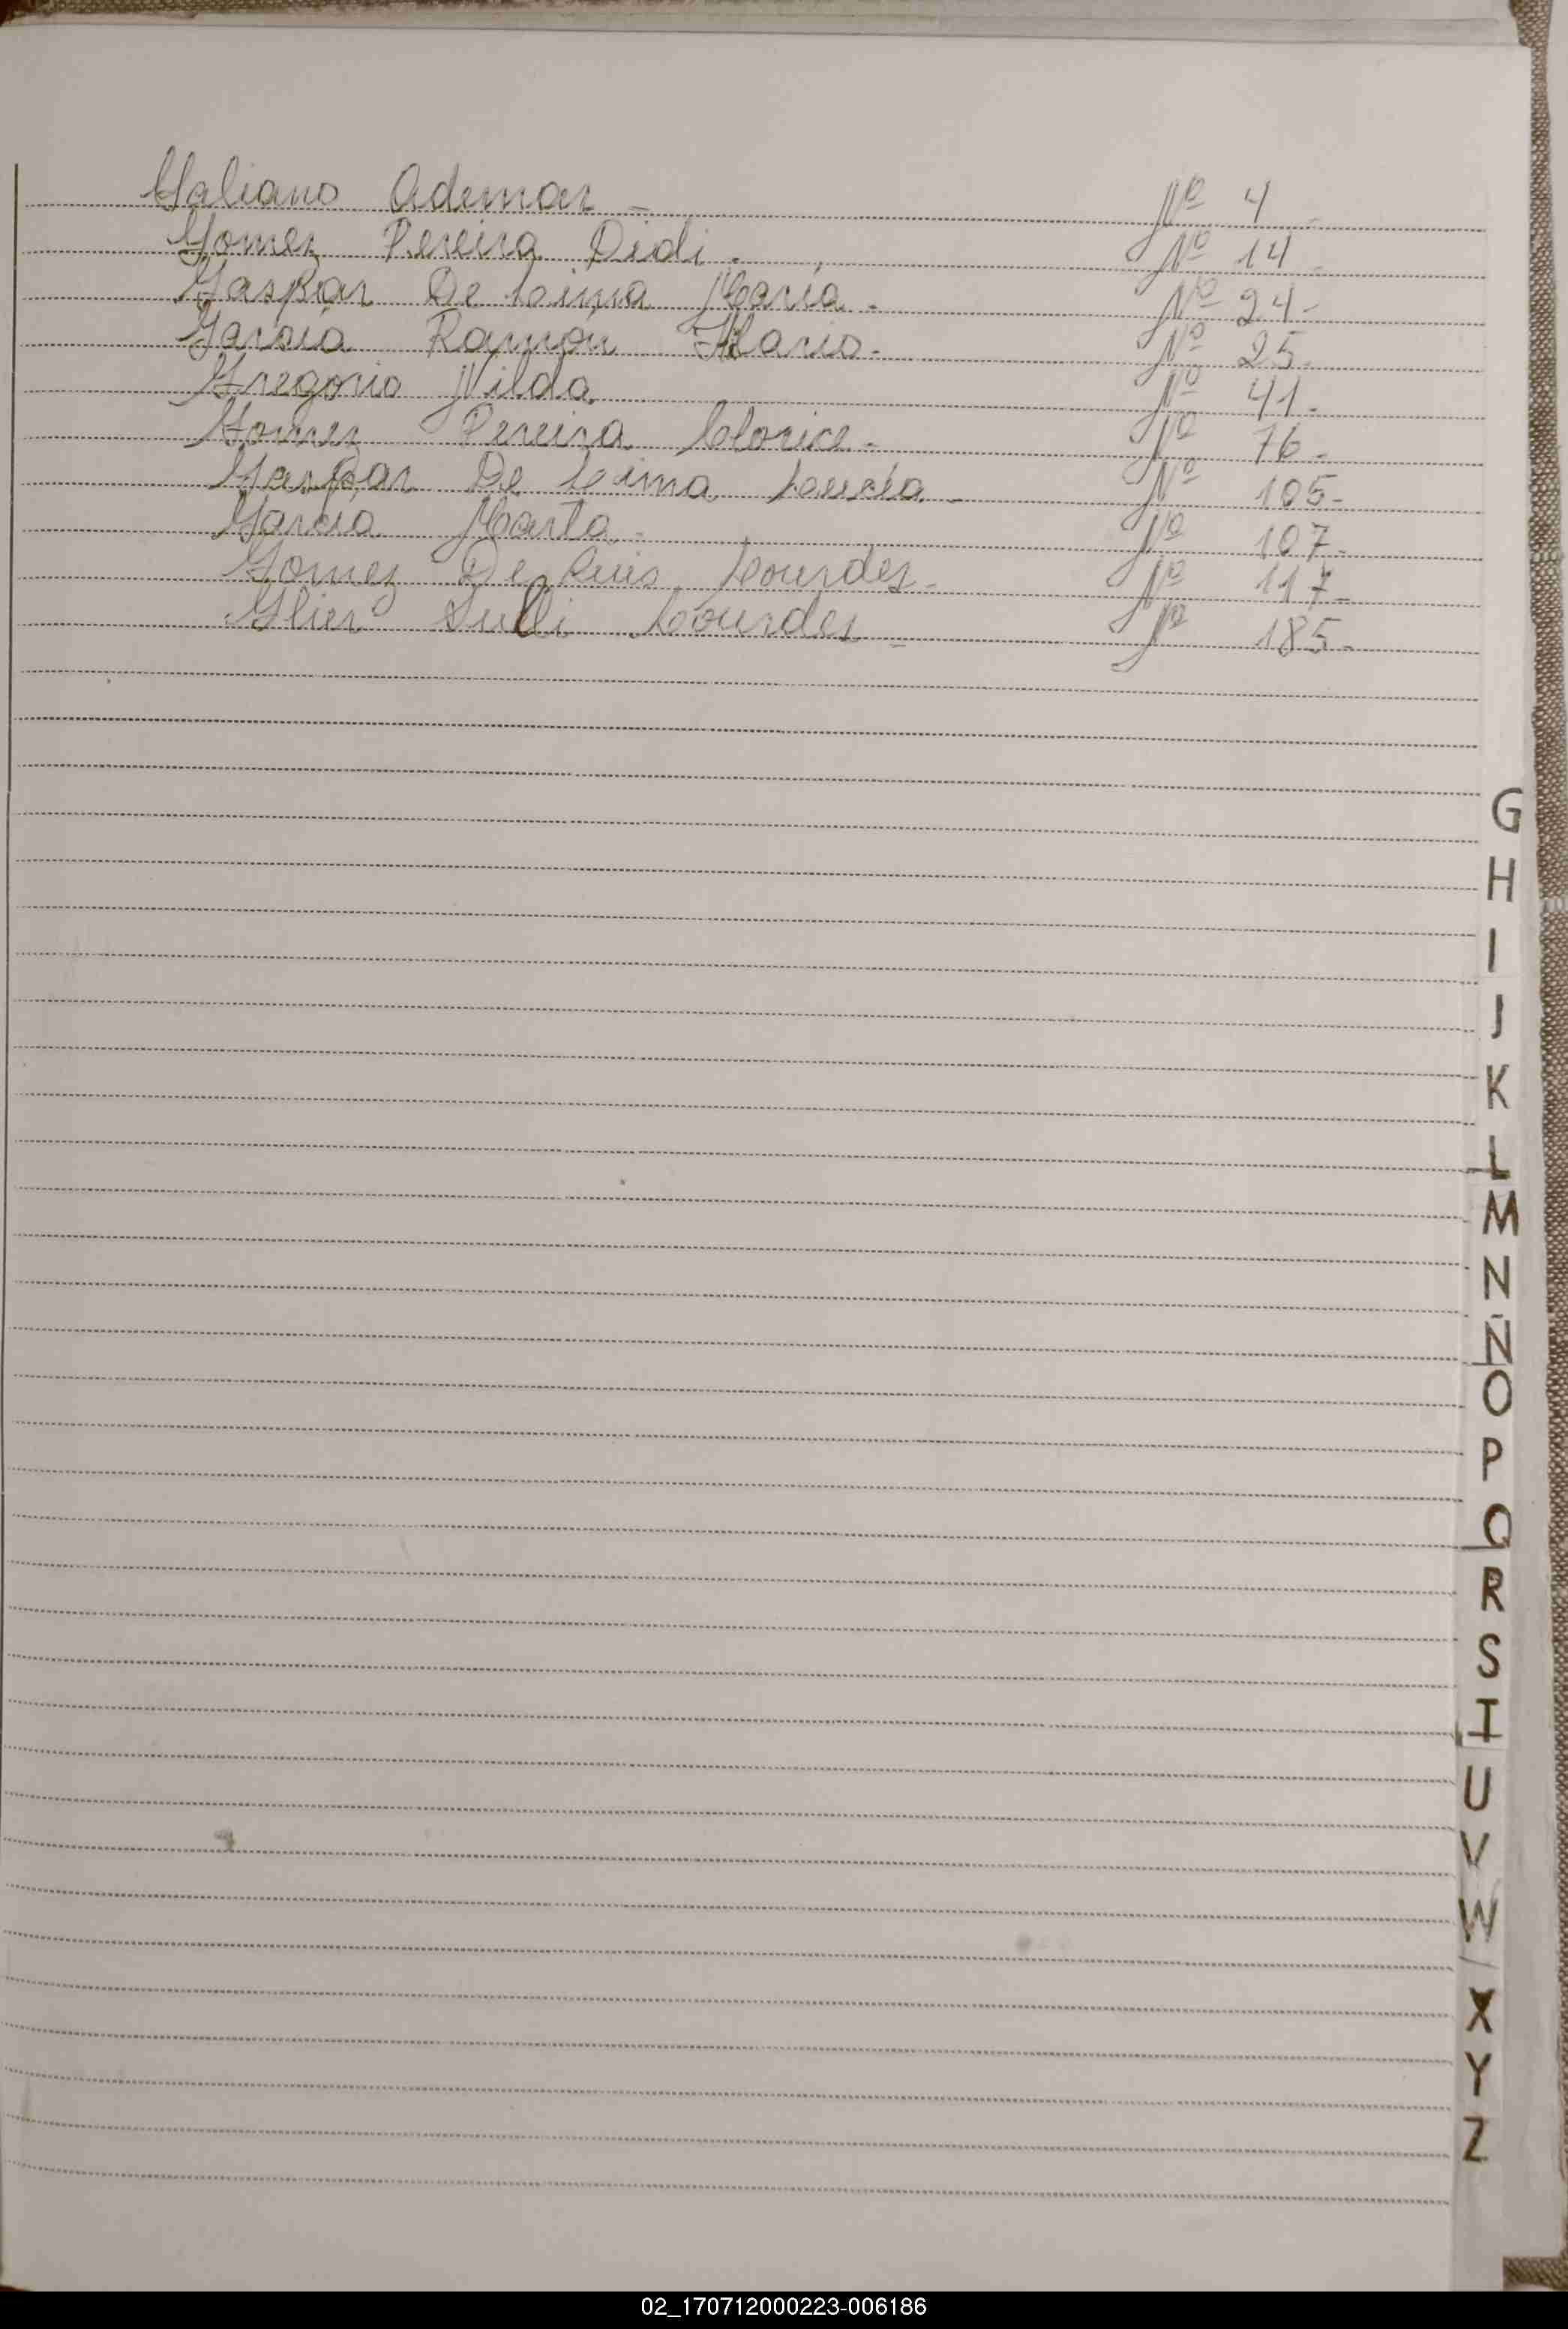 Galiano Ademar - Nº 4 -
Gomez Pereira Didi. Nº 14 -
Gaspar De Lima María. Nº 24 -
Garcia Ramón Ilario. Nº 25 -
Gregorio Nilda. Nº 41 -
Gomez Pereira Clorice. Nº 76 -
Gaspar De Lima Lucía - Nº 105 -
Garcia Marta. Nº 107 -
Gomez De Luis Lourdes - Nº 117 -
Glier Sulli Lourdes - Nº 185 -
G
H
I
J
K
L
M
N
Ñ
O
P
Q
R
S
T
U
V
W
X
Y
Z
02_170712000223-006186